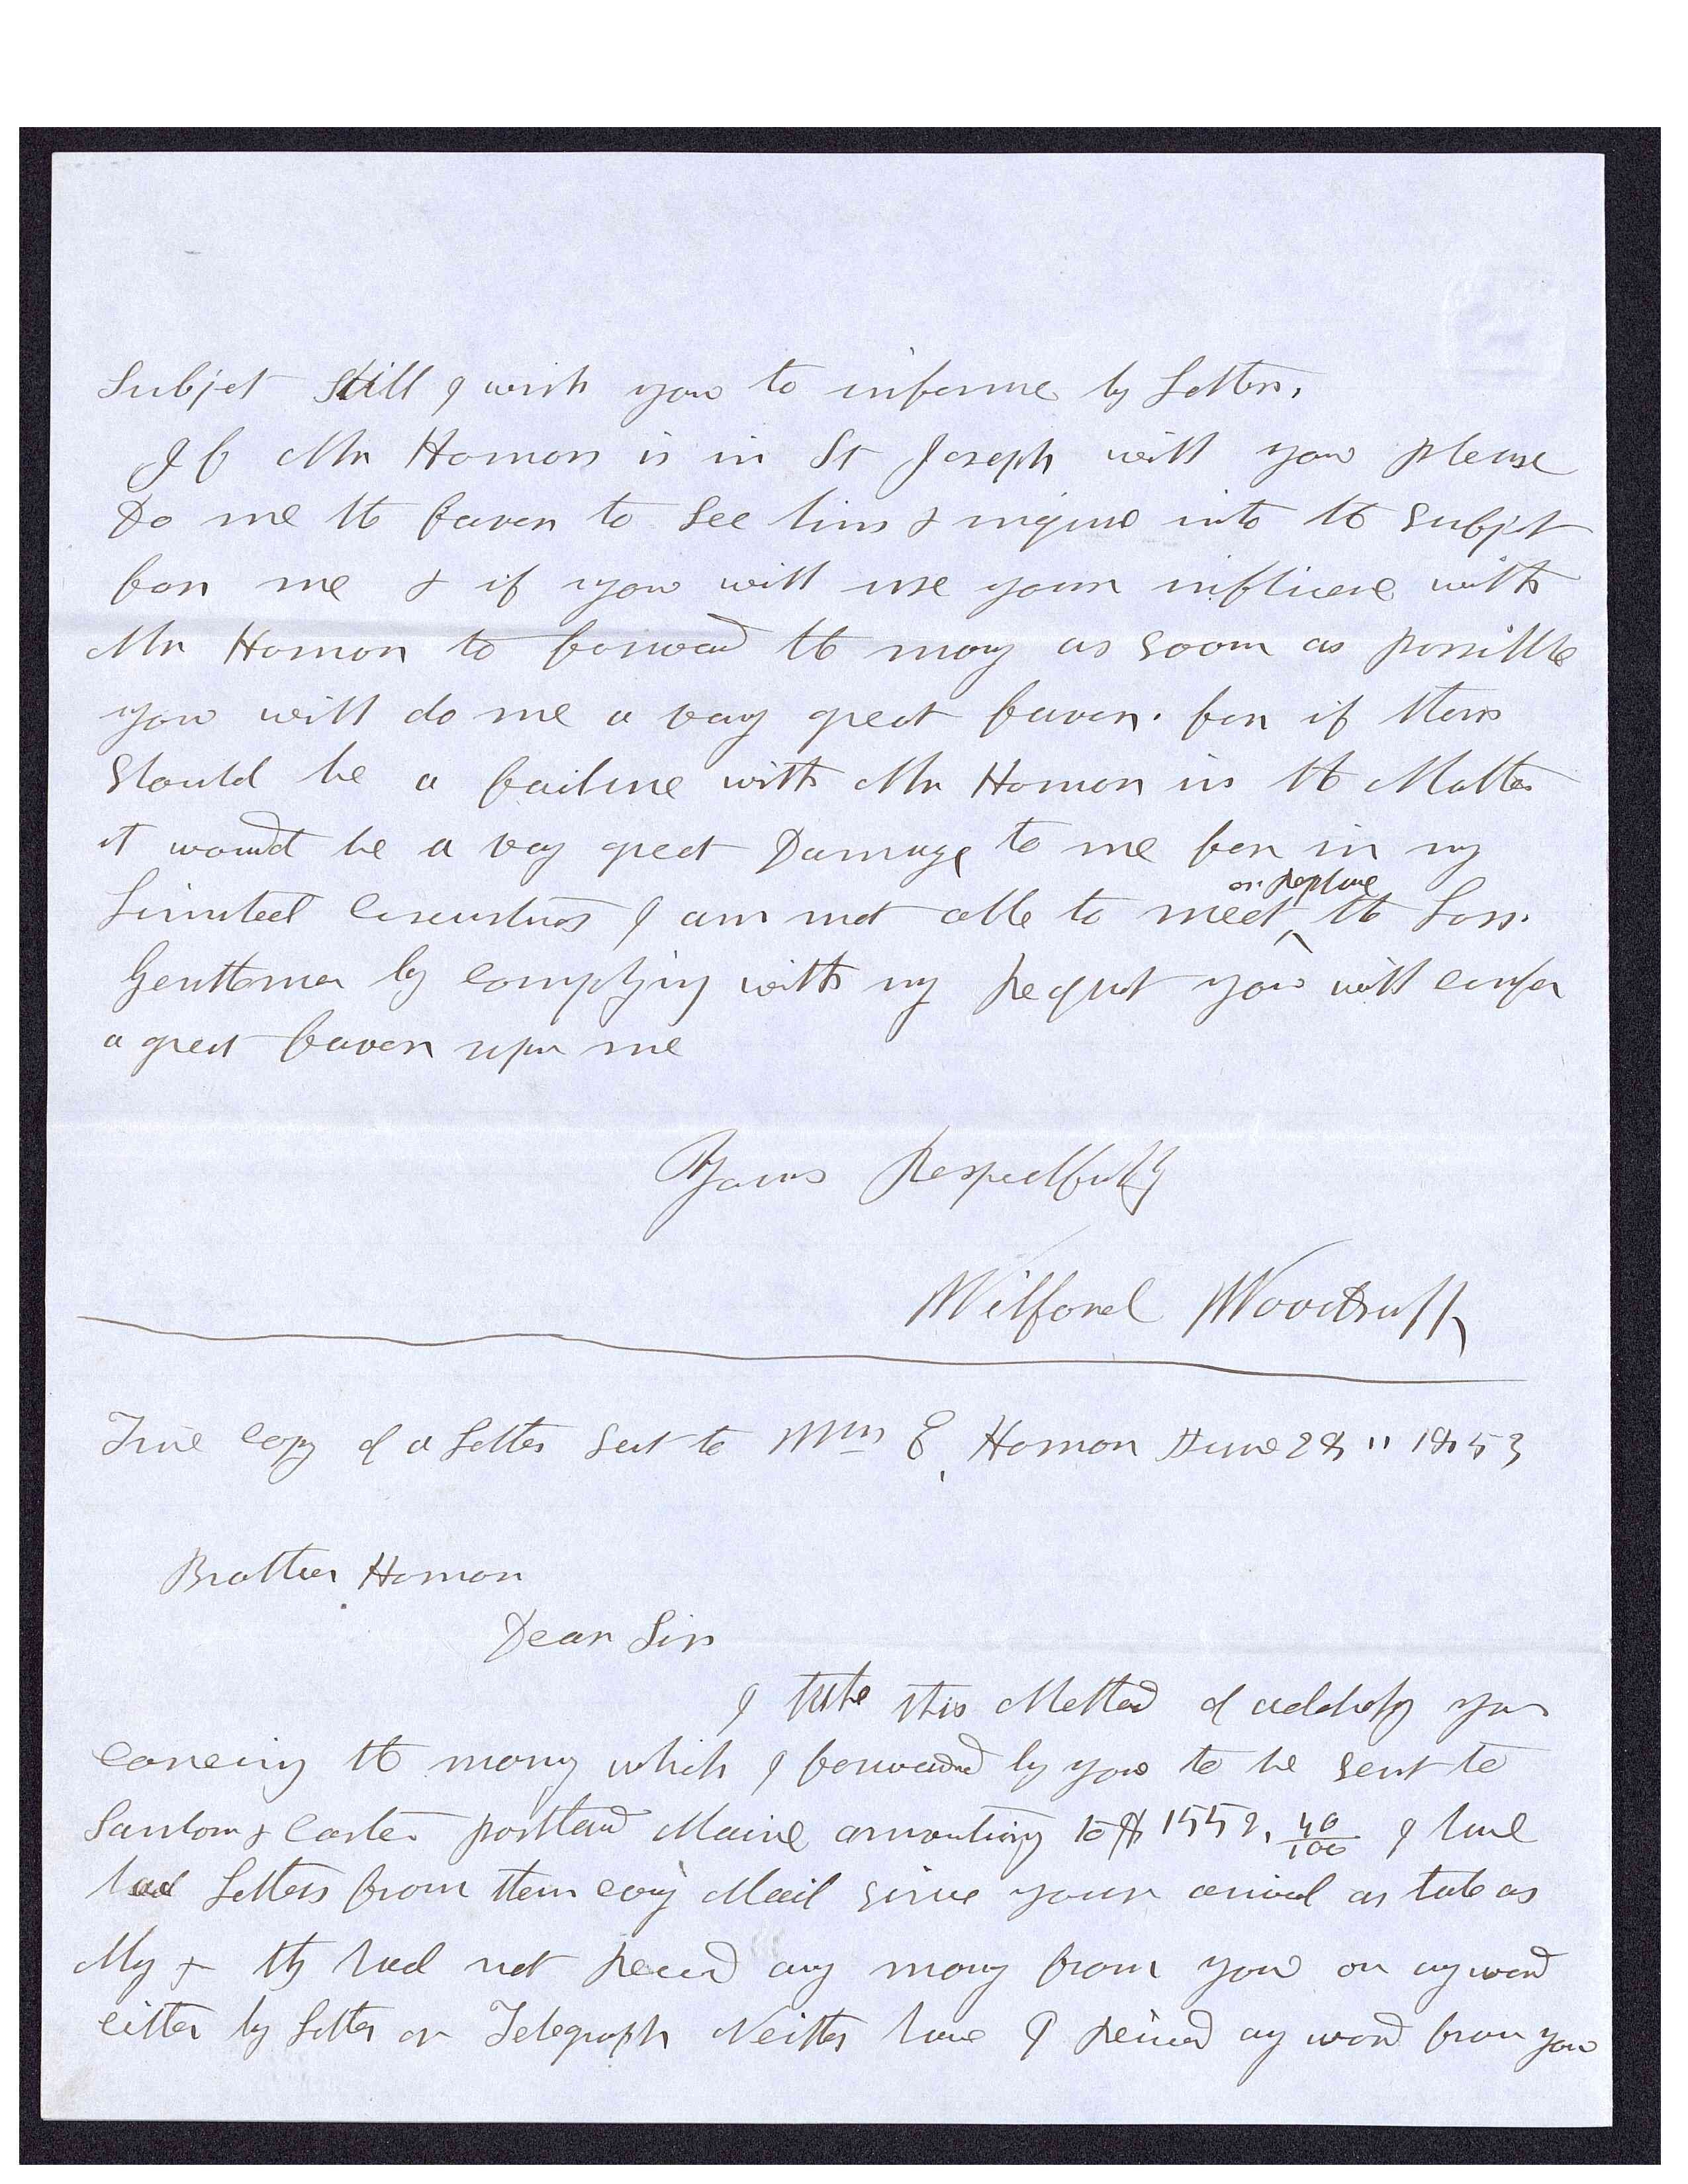 Subjet still I wish you to informe by Letter,
If Mr Homon is in St Joseph will you please
Do me the favor to See him & inquire into the Subjet
for me & if you will use your influence with
Mr Homon to forward the mony as soon as possible
you will do me a vary great favor. for if there
Should be a failure with Mr Homon in the Matter
it would be a vary great Damage to me for in my
or replace
Limited Circumstances I am not able to meet ^ the Loss.
Gentlemen by complying with my request you will confer
a great favor upon me
Yours Respectfully
Wilford Woodruff
True copy of a Letter Sent to Wm E, Homon June 28 " 1853
Brother Homon
Dear Sir
I take this Method of addressing you
concerning the mony which I forwarded by you to be sent to
& Carter portland Maine amounting to $ 1552, 40/100 I have
had Letters from them evry Mail since your arival as late as
May & they had not received any mony from you or any word
either by Letter or Telegraph Neither have I received any word from you